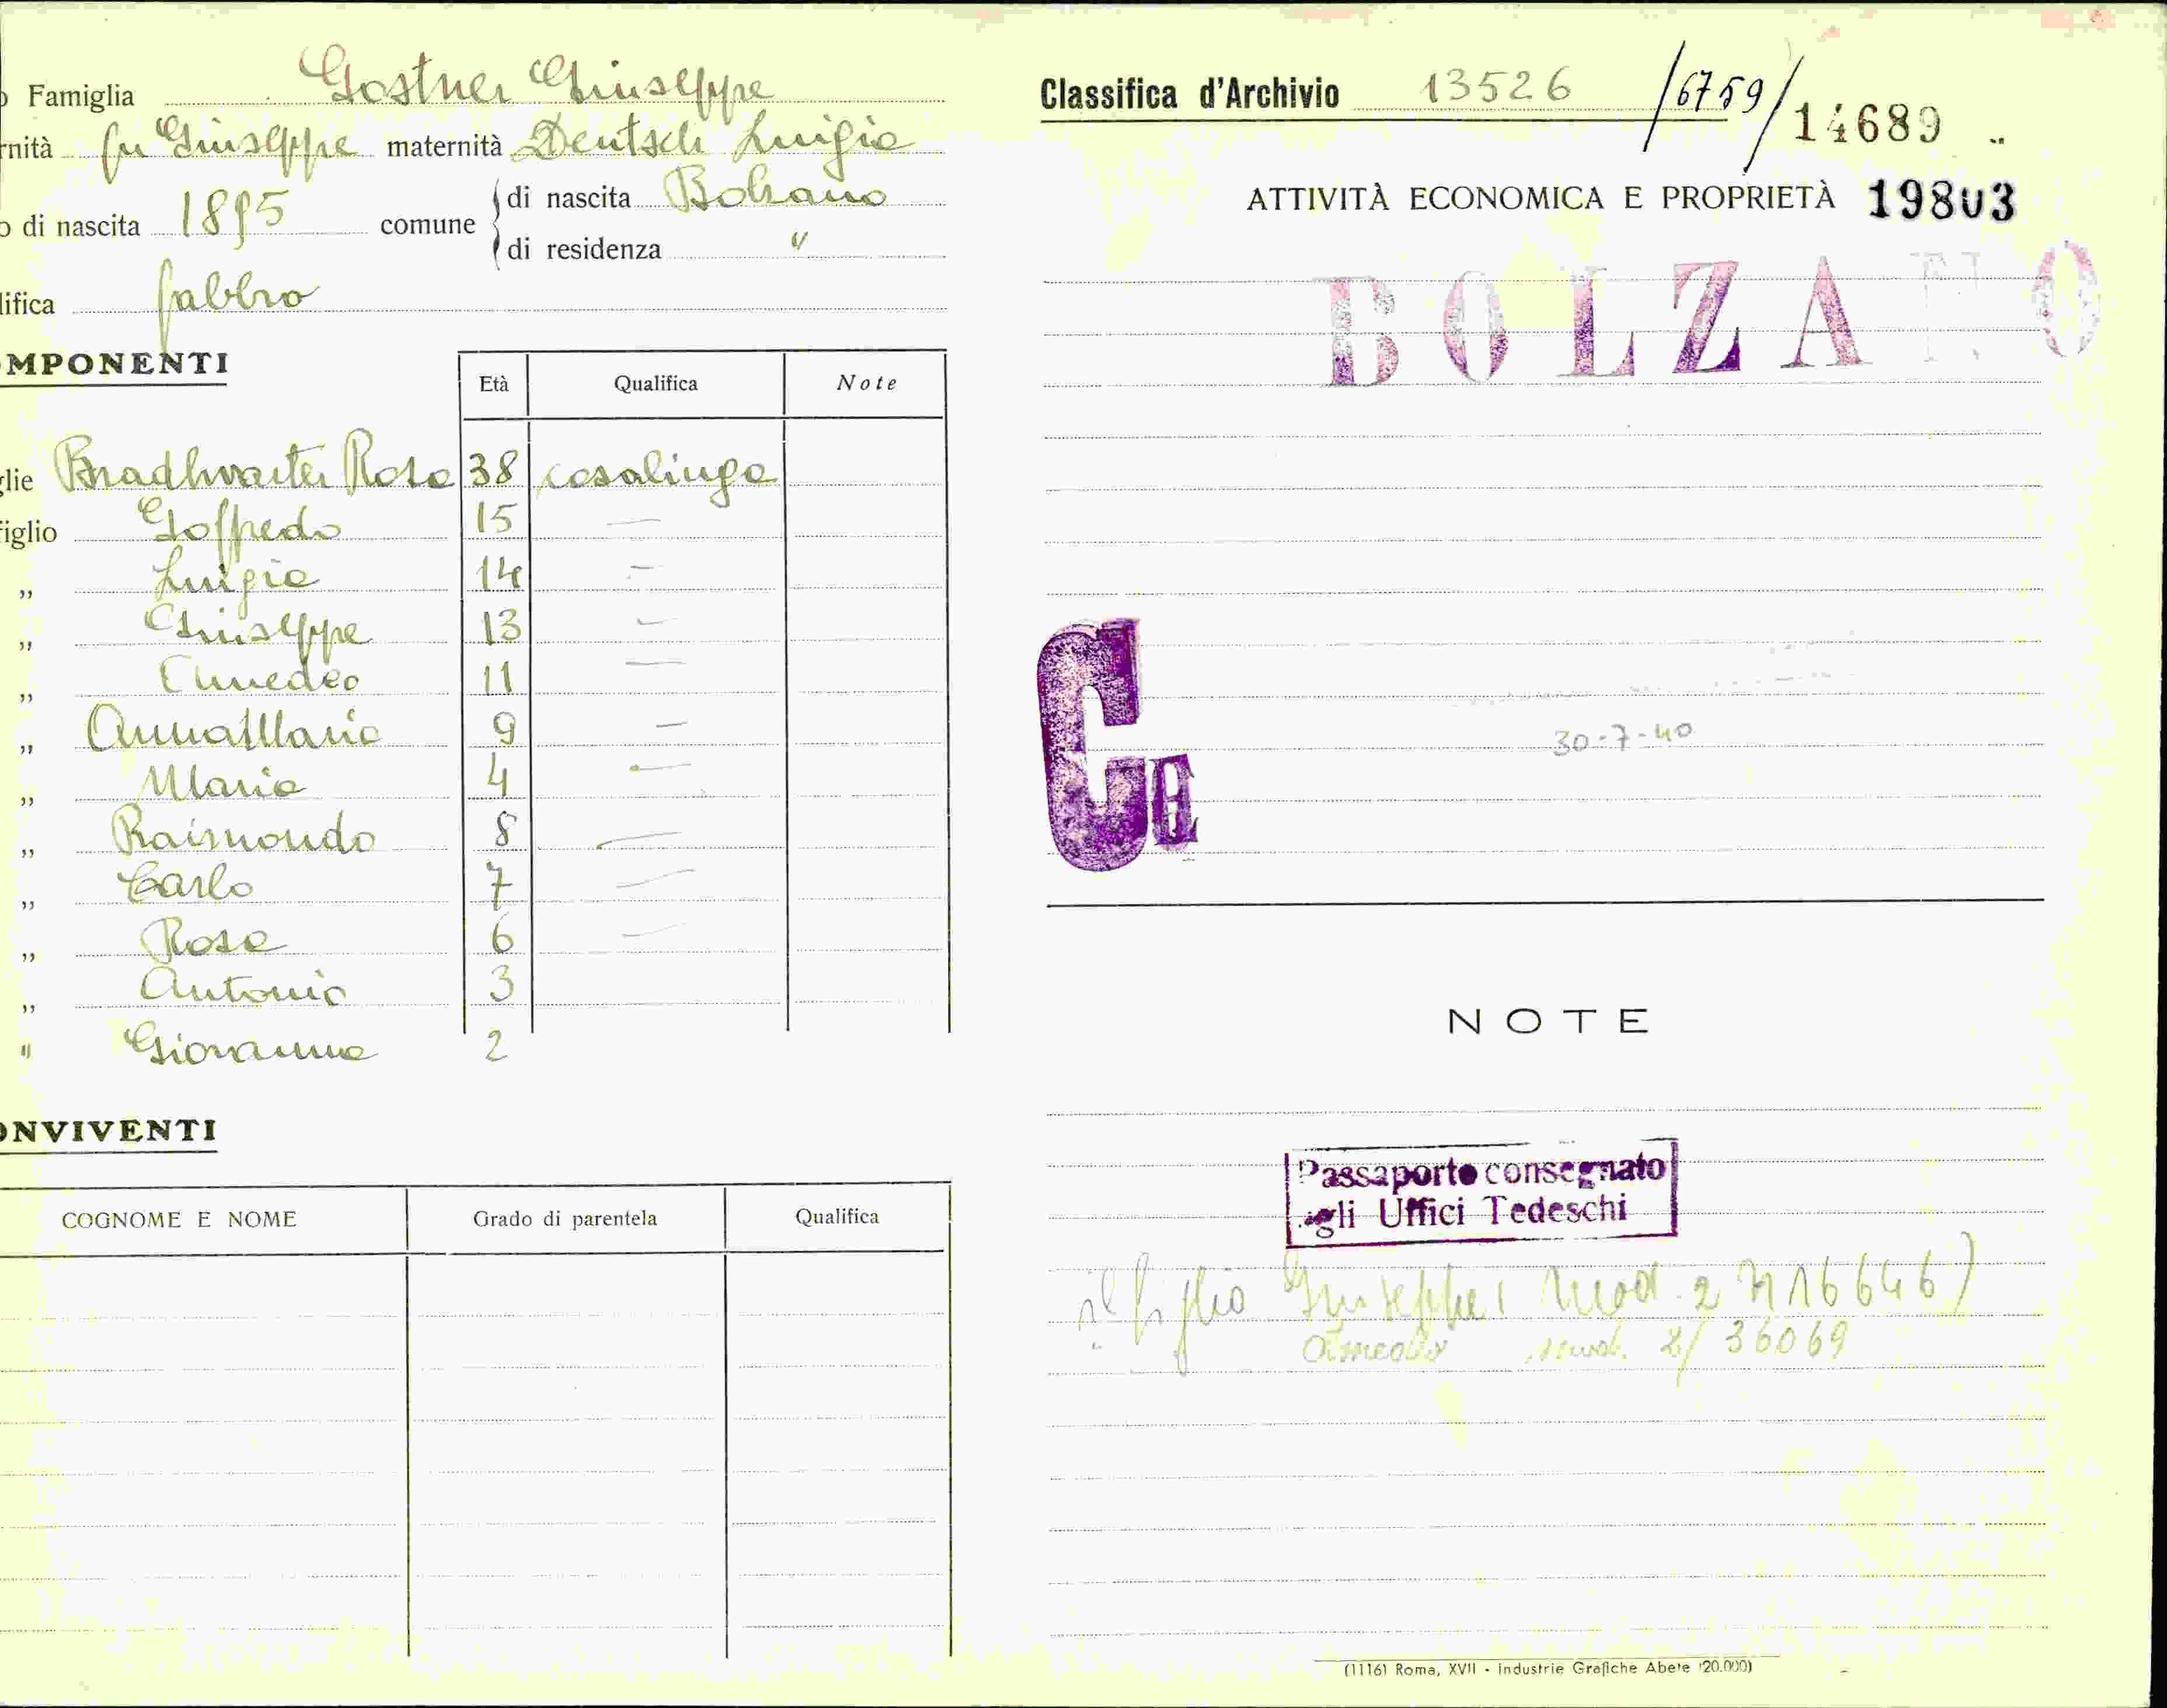 o Famiglia Gostner Giuseppe
rnità fu Giuseppe maternità Deutsch Luigia
o di nascita 1895 comune di nascita Bolzano
di residenza "
lifica fabbro
MPONENTI
Età Qualifica Note
glie Bradlwarter Rosa 38 casalinga
figlio Goffredo 15 —
" Luigia 14 —
" Giuseppe 13 —
" Amedeo 11 —
" Anna Maria 9 —
" Maria 4 —
" Raimondo 8 —
" Carlo 7 —
" Rosa 6 —
" Antonio 3
" Giovanna 2
ONVIVENTI
COGNOME E NOME Grado di parentela Qualifica
Classifica d'Archivio 13526 /6759/ 14689
ATTIVITÀ ECONOMICA E PROPRIETÀ 19803
BOLZANO
30-7-40
NOTE
Passaporto consegnato
agli Uffici Tedeschi
il figlio Giuseppe ( Mod. 2 N 16646)
" " Amedeo mod. 2/ 36069
(1116) Roma, XVII - Industrie Grafiche Abete (20.000)